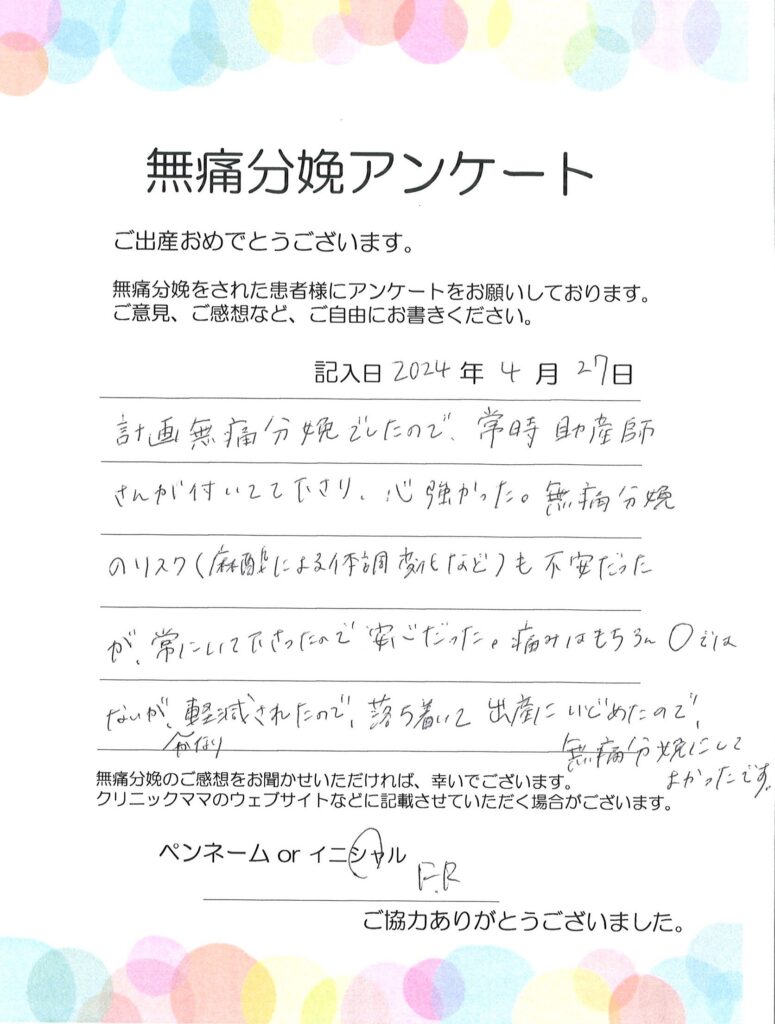 無痛分娩アンケート
ご出産おめでとうございます。
無痛分娩をされた患者様にアンケートをお願いしております。
ご意見、ご感想など、ご自由にお書きください。
記入日 2024 年 4 月 27日
計画無痛分娩でしたので、常時助産師
さんが付いてて下さり、心強かった。無痛分娩
のリスク(麻酔による体調変化など)も不安だった
が、常にいて下さったので安心だった。痛みはもちろん0では
ないが、軽減されたので、落ち着いて出産にいどめたので、
かなり
無痛分娩にして
よかったです。
無痛分娩のご感想をお聞かせいただければ、幸いでございます。
クリニックママのウェブサイトなどに記載させていただく場合がございます。
ペンネーム or イニシャル
F.R
ご協力ありがとうございました。